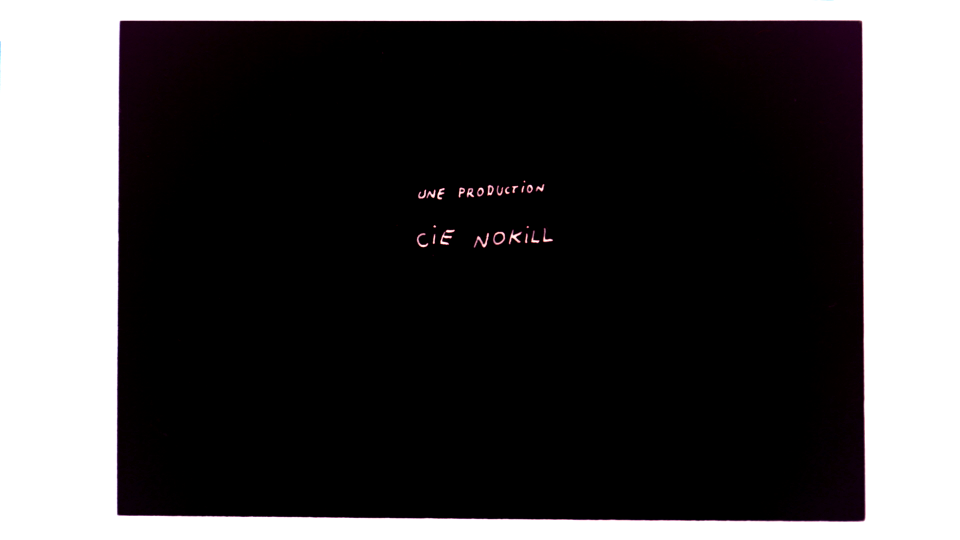 UNE PRODUCTION
CiE NOKiLL